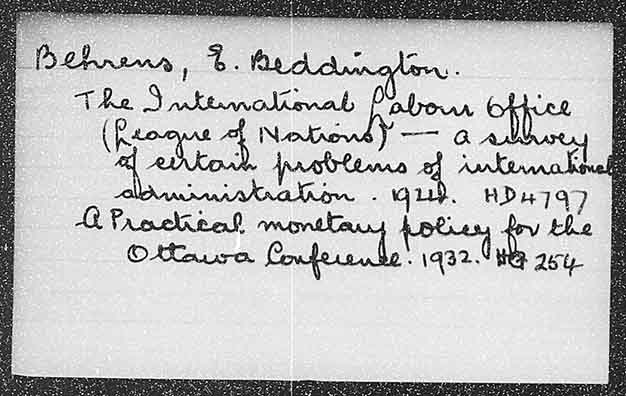 Behrens, E. Beddington.
The International Labour Office
(League of Nations) — a survey
of certain problems of international
administration. 1924. HD4797
A Practical monetary policy for the
Ottawa Conference. 1932. HG 254